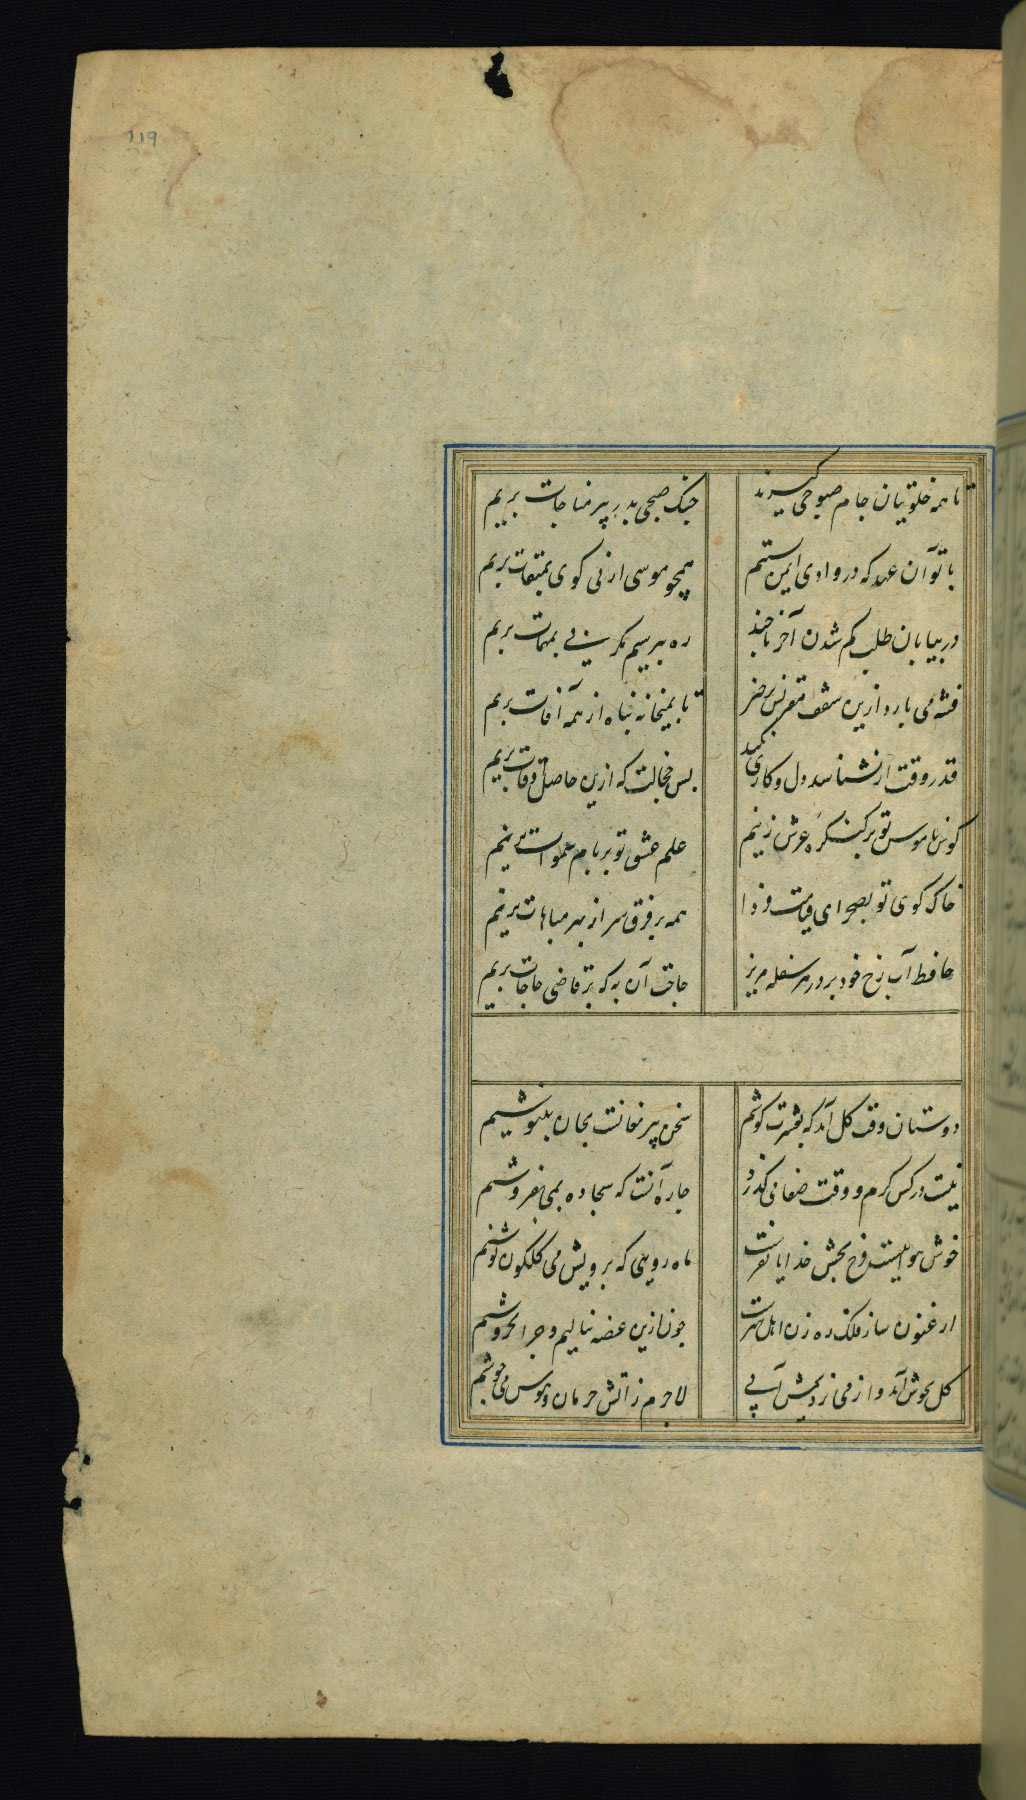 119
تا همه خلوتیان جام صبوحی گیرند
چنگ صبحی بدر پیر مناجات بریم
با تو آن عهد که در وادی ایمن بستیم
همچو موسی ارنی کوی بمیقات بریم
در بیابان طلب کم شدن آخر تا چند
ره بپرسیم مکر پی بمهمات بریم
فتنه می بارد ازین سقف مقرنس برخیز
تا بمیخانه پناه از همه آفات بریم
قدر وقت ار نشناسد دل و کاری نکند
بس خجالت که ازین حاصل اوقات بریم
کوس ناموس تو بر کنکره عرش زنیم
علم عشق تو بر بام سموات بریم
خاک کوی تو بصحرای قیامت فردا
همه بر فرق سر از بهر مباهات بریم
حافظ آب رخ خود بر در هر سفله مریز
حاجت آن به که بر قاضی حاجات بریم
دوستان وقت کل آمد که بعشرت کوشیم
سخن پیر مغانست بجان بنیوشیم
نیست در کس کرم و وقت صفا می کذرد
چاره آنست که سجاده بمی بفروشیم
خوش هوائیست فرح بخش خدایا بفرست
ماه رویی که برویش می کلکون نوشیم
ارغنون ساز فلک ره زن اهل هنرست
چون ازین غصه ننالیم و چرا نخروشیم
کل بجوش آمد و از می نزدیمش آبی
لاجرم ز آتش حرمان و هوس می جوشیم